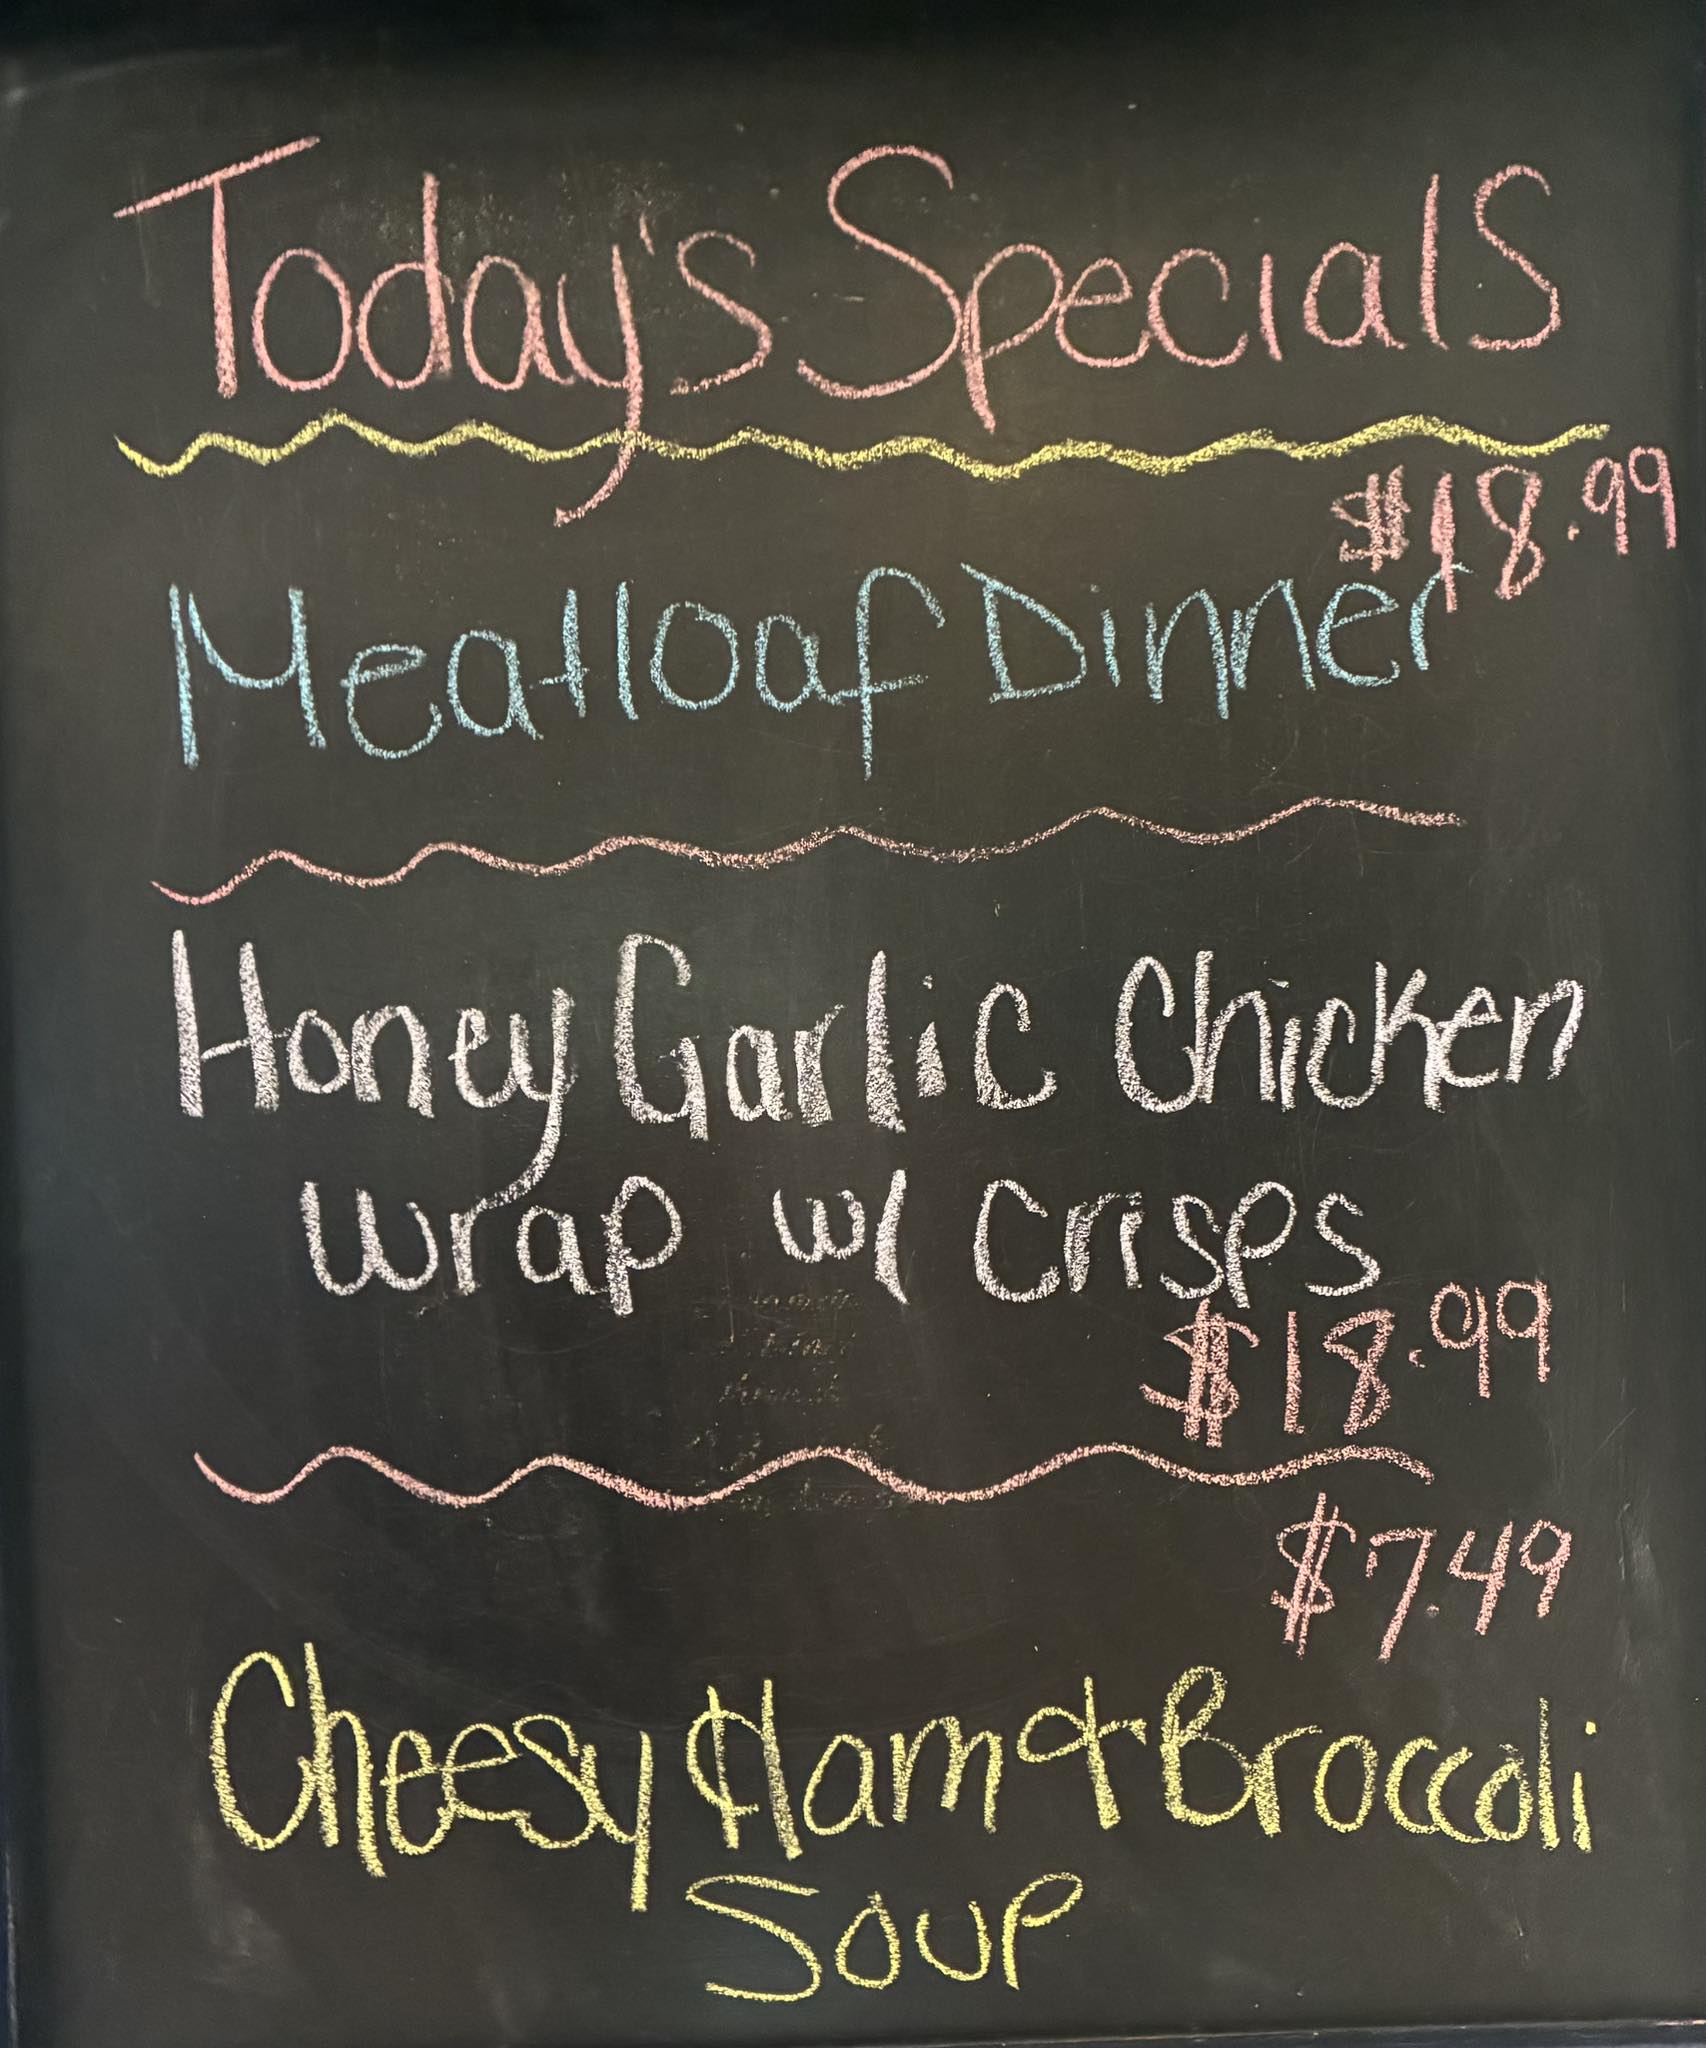 Today's Specials
$18.99
Meatloaf Dinner
Honey Garlic Chicken
Wrap w/ Crisps
$18.99
$7.49
Cheesy Ham & Broccoli
Soup